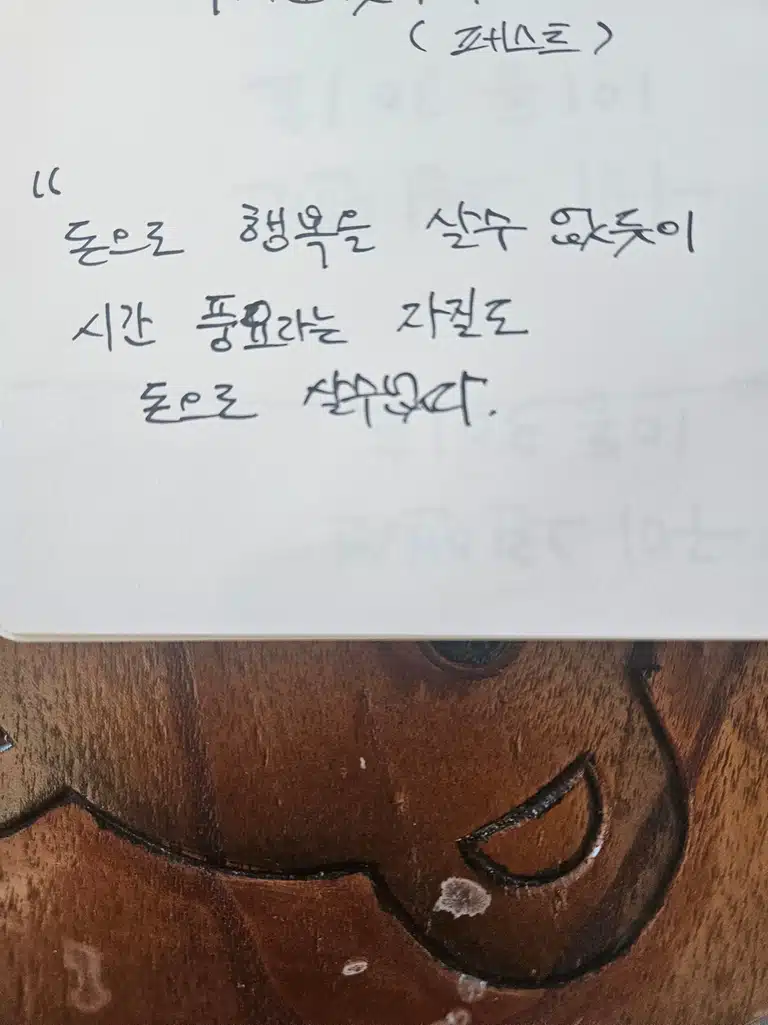 (페스트)
"
돈으로 행복을 살수 없듯이
시간 풍요라는 자질도
돈으로 살수없다.